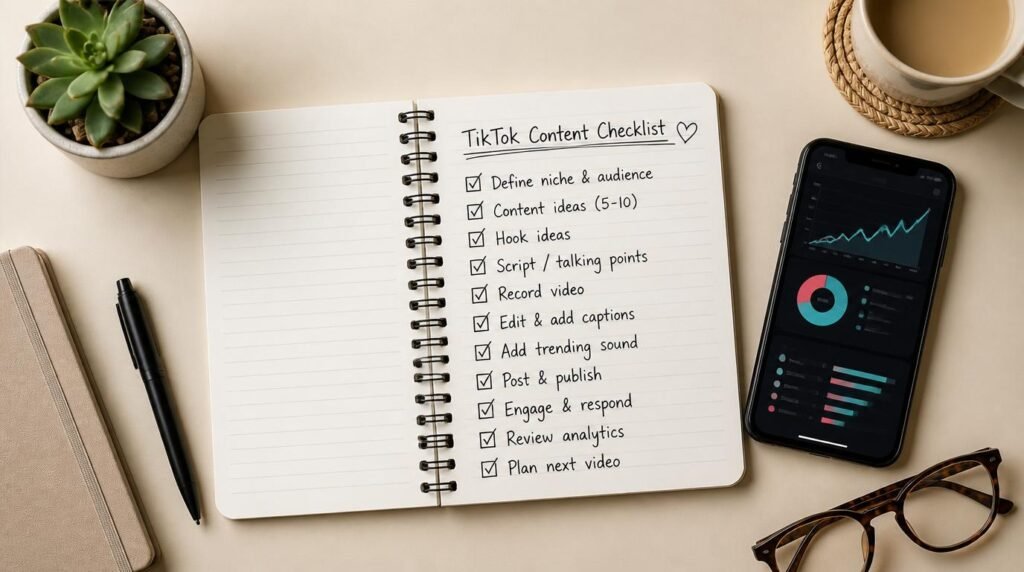 TikTok Content Checklist ♡
☑ Define niche & audience
☑ Content ideas (5-10)
☑ Hook ideas
☑ Script / talking points
☑ Record video
☑ Edit & add captions
☑ Add trending sound
☑ Post & publish
☑ Engage & respond
☑ Review analytics
☑ Plan next video